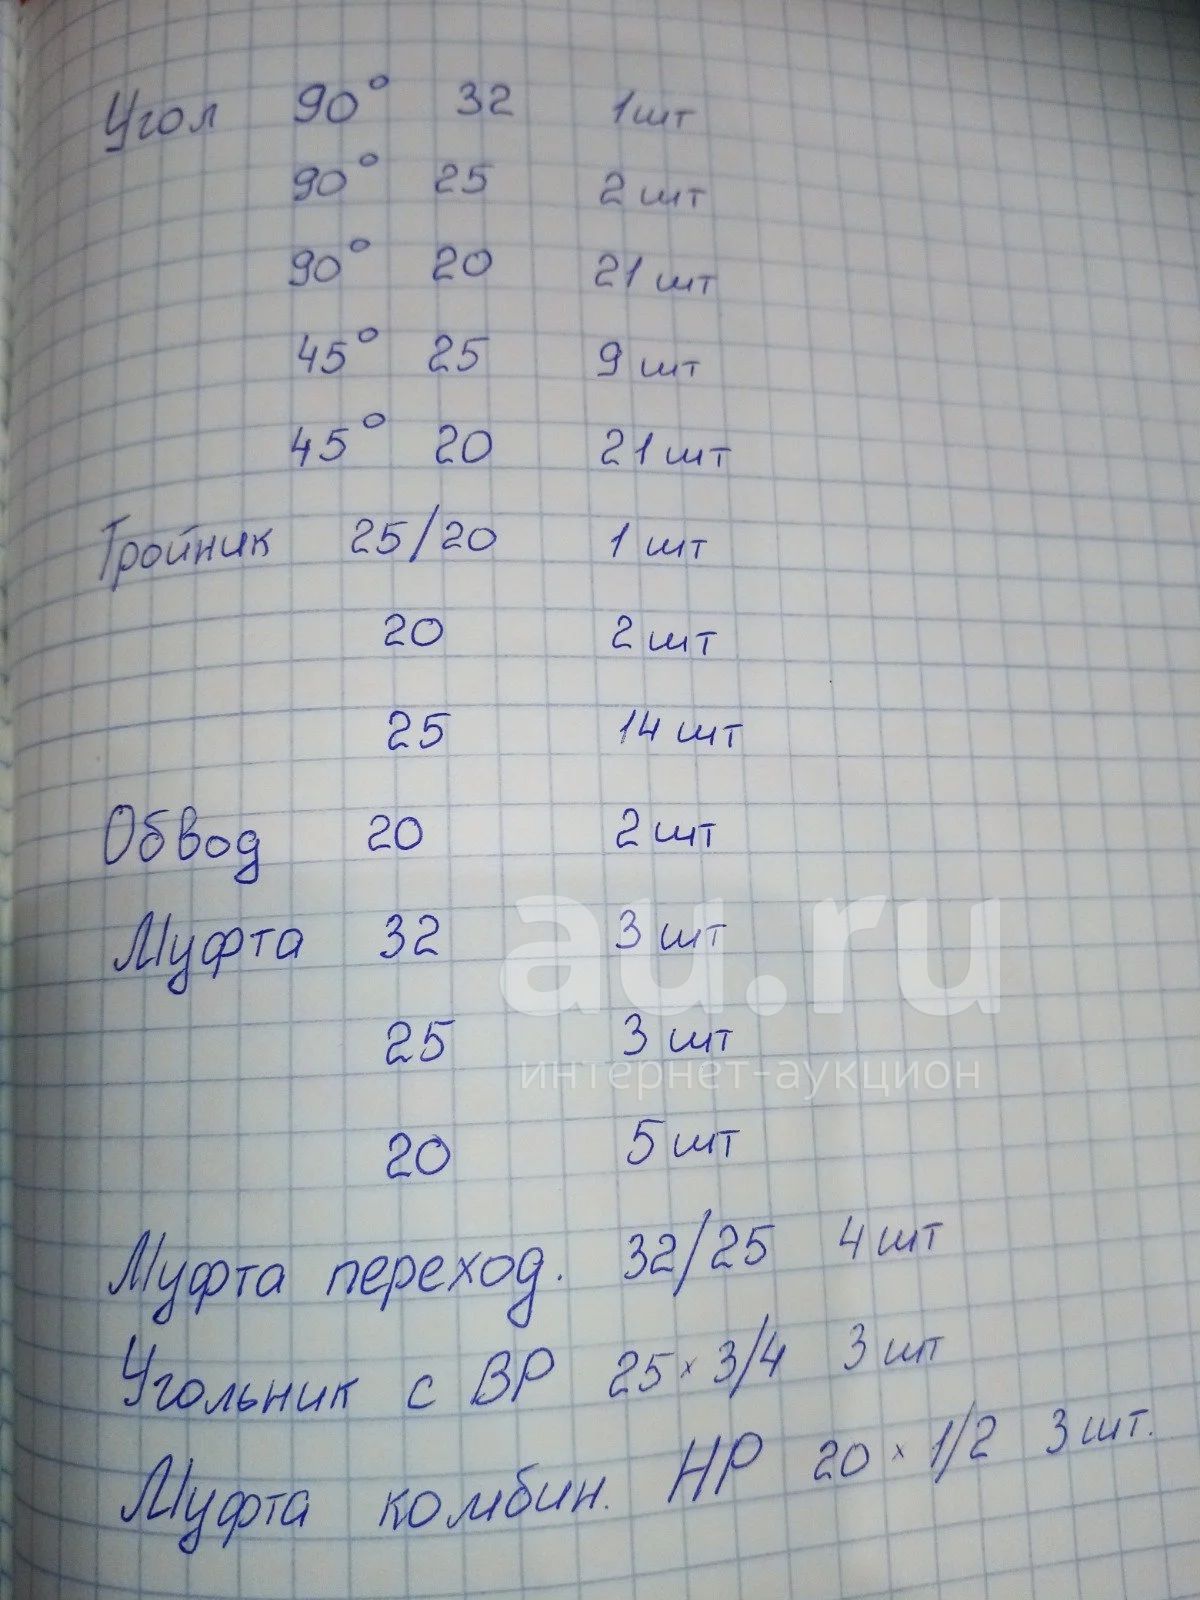 Угол 90° 32 1 шт
90° 25 2 шт
90° 20 21 шт
45° 25 9 шт
45° 20 21 шт
Тройник 25/20 1 шт
20 2 шт
25 14 шт
Обвод 20 2 шт
Муфта 32 3 шт
au.ru
25 3 шт
интернет-аукцион
20 5 шт
Муфта переход. 32/25 4 шт
Угольник с ВР 25 × 3/4 3 шт
Муфта комбин. НР 20 × 1/2 3 шт.